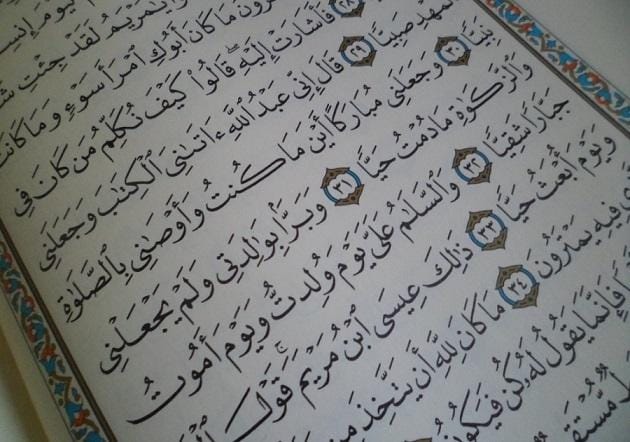 يَوْمَ إِنسِ
يَٰمَرْيَمُ لَقَدْ جِئْتِ
رُونَ مَا كَانَ أَبُوكِ ٱمْرَأَ سَوْءٍ وَمَا كَانَتْ
٢٨ فَأَشَارَتْ إِلَيْهِ ۖ قَالُوا۟ كَيْفَ نُكَلِّمُ مَن كَانَ فِى
ٱلْمَهْدِ صَبِيًّا ٢٩ قَالَ إِنِّى عَبْدُ ٱللَّهِ ءَاتَىٰنِىَ ٱلْكِتَٰبَ وَجَعَلَنِى
نَبِيًّا ٣٠ وَجَعَلَنِى مُبَارَكًا أَيْنَ مَا كُنتُ وَأَوْصَٰنِى بِٱلصَّلَوٰةِ
وَٱلزَّكَوٰةِ مَا دُمْتُ حَيًّا ٣١ وَبَرًّۢا بِوَٰلِدَتِى وَلَمْ يَجْعَلْنِى
جَبَّارًا شَقِيًّا ٣٢ وَٱلسَّلَٰمُ عَلَىَّ يَوْمَ وُلِدتُّ وَيَوْمَ أَمُوتُ
وَيَوْمَ أُبْعَثُ حَيًّا ٣٣ ذَٰلِكَ عِيسَى ٱبْنُ مَرْيَمَ ۚ قَوْلَ
فِيهِ يَمْتَرُونَ ٣٤ مَا كَانَ لِلَّهِ أَن يَتَّخِذَ مِن
فَإِنَّمَا يَقُولُ لَهُۥ كُن فَيَكُونُ